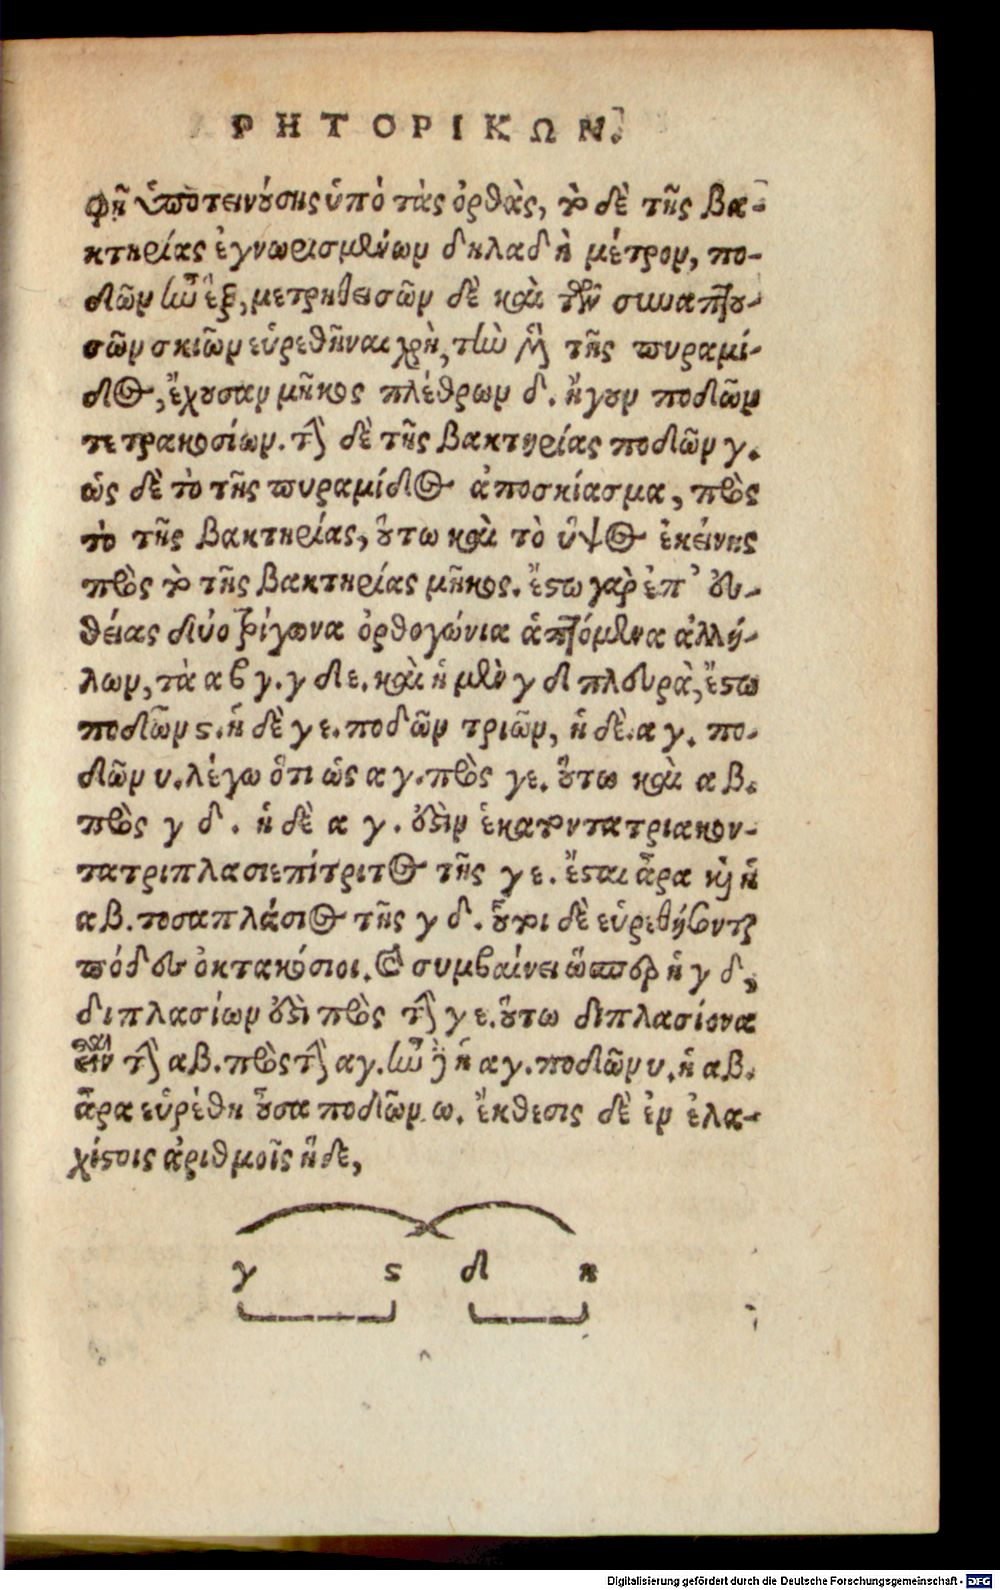 ΡΗΤΟΡΙΚΩΝ.
φῇ ὑποτεινούσης ὑπὸ τὰς ὀρθὰς, τὸ δὲ τῆς βα-
κτηρίας ἐγνωρισμένων δηλαδὴ μέτρον, πο-
δῶν ἦν ἓξ, μετρηθεισῶν δὲ καὶ τῶν συναπτου-
σῶν σκιῶν εὑρεθῆναι χρὴ, τὴν μὲν τῆς πυραμί-
δος, ἔχουσαν μῆκος πλέθρων δ. ἤγουν ποδῶν
τετρακοσίων. τὴν δὲ τῆς βακτηρίας ποδῶν γ.
ὡς δὲ τὸ τῆς πυραμίδος ἀποσκίασμα, πρὸς
τὸ τῆς βακτηρίας, οὕτω καὶ τὸ ὕψος ἐκείνης
πρὸς τὸ τῆς βακτηρίας μῆκος. ἔστω γὰρ ἐπ' εὐ-
θείας δύο τρίγωνα ὀρθογώνια ἁπτόμενα ἀλλή-
λων, τὰ αβγ. γδε. καὶ ἡ μὲν γδ πλευρὰ, ἔστω
ποδῶν ϛ. ἡ δὲ γε. ποδῶν τριῶν, ἡ δὲ. αγ. πο-
δῶν υ. λέγω ὅτι ὡς αγ. πρὸς γε. οὕτω καὶ αβ.
πρὸς γδ. ἡ δὲ αγ. ἐστὶν ἑκατοντατριακον-
τατριπλασιεπίτριτος τῆς γε. ἔσται ἄρα καὶ ἡ
αβ. τοσαπλάσιος τῆς γδ. οὗτοι δὲ εὑρεθήσονται
πόδες ὀκτακόσιοι. καὶ συμβαίνει ὥσπερ ἡ γδ,
διπλασίων ἐστὶ πρὸς τὴν γε. οὕτω διπλασίονα
εἶναι τὴν αβ. πρὸς τὴν αγ. ἦν γὰρ ἡ αγ. ποδῶν υ. ἡ αβ.
ἄρα εὑρέθη οὖσα ποδῶν ω. ἔκθεσις δὲ ἐν ἐλα-
χίστοις ἀριθμοῖς ἥδε,
γ ϛ δ η
Digitalisierung gefördert durch die Deutsche Forschungsgemeinschaft - DFG